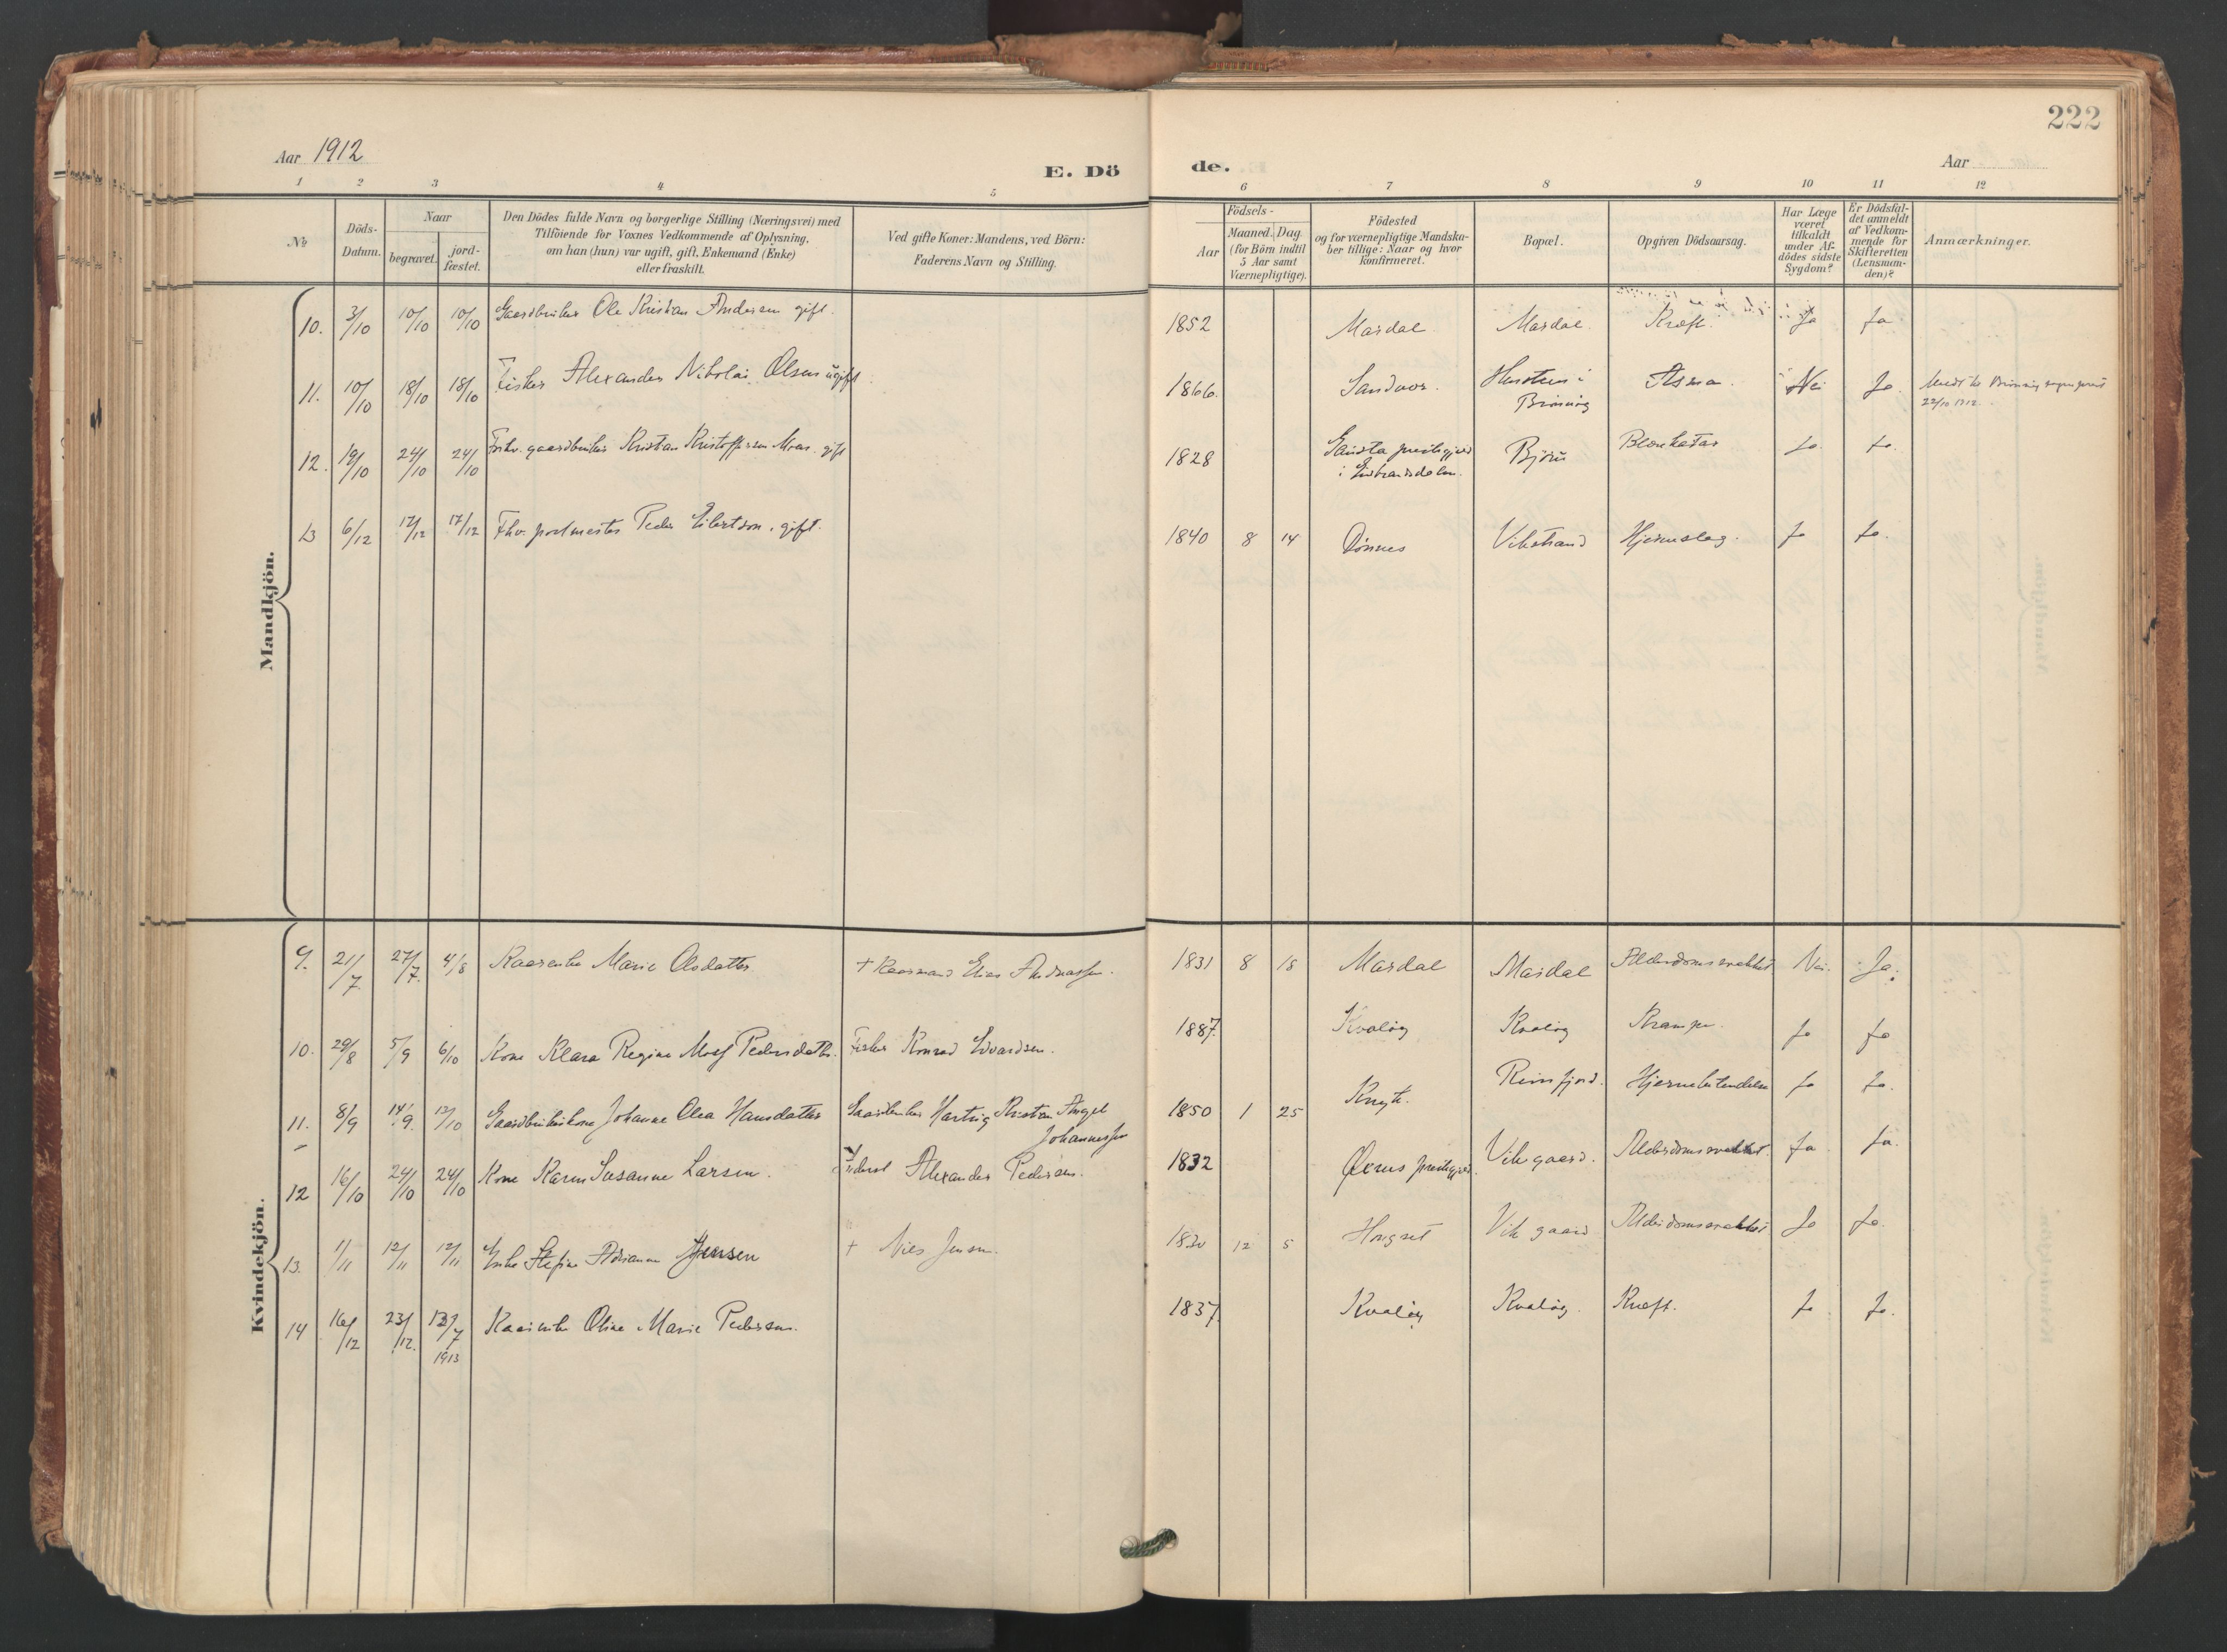 222
Aar 1912
E. Dö
de.
Aar
1 2 3 4 5 6 7 8 9 10 11 12
№
Döds-
Datum.
Naar
begravet.
jord-
fæstet.
Den Dödes fulde Navn og borgerlige Stilling (Næringsvei) med
Tilföiende for Voxnes Vedkommende af Oplysning,
om han (hun) var ugift, gift, Enkemand (Enke)
eller fraskilt.
Ved gifte Koner: Mandens, ved Börn:
Faderens Navn og Stilling.
Födsels-
Aar
Maaned. Dag.
(for Börn indtil
5 Aar samt
Værnepligtige).
Födested
og for værnepligtige Mandska-
ber tillige: Naar og hvor
konfirmeret.
Bopæl.
Opgiven Dödsaarsag.
Har Læge
været
tilkaldt
under Af-
dödes sidste
Sygdom?
Er Dödsfal-
det anmeldt
af Vedkom-
mende for
Skifteretten
(Lensman-
den)?
Anmærkninger.
Mandkjön.
10. 3/10 10/10 10/10 Gaardbruker Ole Kristian Andersen gift. 1852 Mardal Mardal Kræft. Ja Ja
11. 10/10 18/10 18/10 Fisker Alexander Nikolai Olsen ugift. 1866. Sandvær. i Asma. Nei Ja
Brönnöy 22/10 1912.
12. 19/10 24/10 24/10 Forhv. gaardbruker Kristian Kristoffersen Moen. gift 1828 Bjørn Blærekatar Ja. Ja.
i Gudbrandsdalen.
13 6/12 17/12 17/12 Fhv. postmester Peder Eibertson. gift. 1840 8 14 Dönnes Vikstrand Hjerneslag. Ja Ja.
Kvindekjön.
9. 21/7 27/7 4/8 Kaarenke Marie Olsdatter. + Kaarmand Elias Andreassen. 1831 8 18 Mardal Mardal Alderdomssvakhet Nei. Ja.
10. 29/8 5/9 6/10 Kone Klara Regine Pedersdatter. Fisker Konrad Edvardsen. 1887. Kvaløy Kvaløy Krampe. Ja Ja
11. 8/9 14/9. 12/10 Gaardbrukerkone Johanne Olea Hansdatter Gaardbruker Hartvig Kristian Angel
Johannessen 1850 1 25 Hjernebetændelse Ja Ja.
12 16/10 24/10 24/10 Kone Karen Susanne Larsen. Alexander Pedersen. 1832 Vikgaard. Alderdomssvakhet. Ja Ja.
13. 1/11 12/11 12/11 Enke Adrianne Jensen + Niels Jensen. 1830 12 5 Vikgaard Alderdomssvakhet Ja Ja.
14 16/12 23/12. 13/7 Oline Marie Pedersen. 1837. Kvaløy Kvaløy. Kræft. Ja Ja.
1913